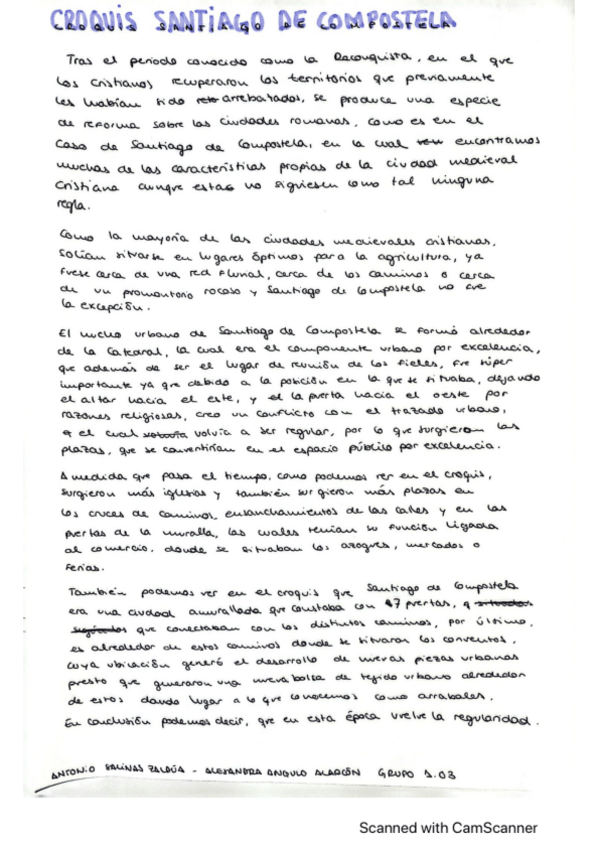 CROQUIS SANTIAGO DE COMPOSTELA
Tras el periodo conocido como la Reconquista, en el que
los cristianos recuperaron los territorios que previamente
les habían sido arrebatados, se produce una especie
de reforma sobre las ciudades romanas, como es en el
caso de Santiago de Compostela, en la cual encontramos
muchas de las características propias de la ciudad medieval
cristiana aunque estas no siguiesen como tal ninguna
regla.
Como la mayoría de las ciudades medievales cristianas,
solían situarse en lugares óptimos para la agricultura, ya
fuese cerca de una red fluvial, cerca de los caminos o cerca
de un promontorio rocoso y Santiago de Compostela no fue
la excepción.
El nucleo urbano de Santiago de Compostela se formó alrededor
de la Catedral, la cual era el componente urbano por excelencia,
que además de ser el lugar de reunión de los fieles, fue súper
importante ya que debido a la posición en la que se situaba, dejando
el altar hacia el este, y el la puerta hacia el oeste por
razones religiosas, creo un conflicto con el trazado urbano,
el cual volvía a ser regular, por lo que surgieron las
plazas, que se convertirían en el espacio público por excelencia.
A medida que pasa el tiempo, como podemos ver en el croquis,
surgieron más iglesias y también surgieron más plazas en
los cruces de caminos, ensanchamientos de las calles y en las
puertas de la muralla, las cuales tenían su función ligada
al comercio, donde se situaban los azogues, mercados o
ferias.
También podemos ver en el croquis que Santiago de Compostela
era una ciudad amurallada que constaba con 7 puertas,
que conectaban con los distintos caminos, por último,
es alrededor de estos caminos donde se situaron los conventos,
cuya ubicación generó el desarrollo de nuevas piezas urbanas
presto que generaron una nueva bolsa de tejido urbano alrededor
de estos dando lugar a lo que conocemos como arrabales.
En conclusión podemos decir, que en esta época vuelve la regularidad.
ANTONIO SALINAS ZALDÚA - ALEJANDRA ANGULO ALARCÓN GRUPO 1.03
Scanned with CamScanner